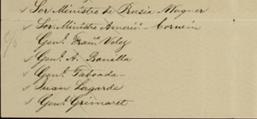 Sor Ministro de Rusia Wagner
Sor Ministro Americ. Corwin
Genl. Franco Velez
Genl. A. Bonilla
Genl. Taboada
Juan Lagarde
Genl. Grimaret